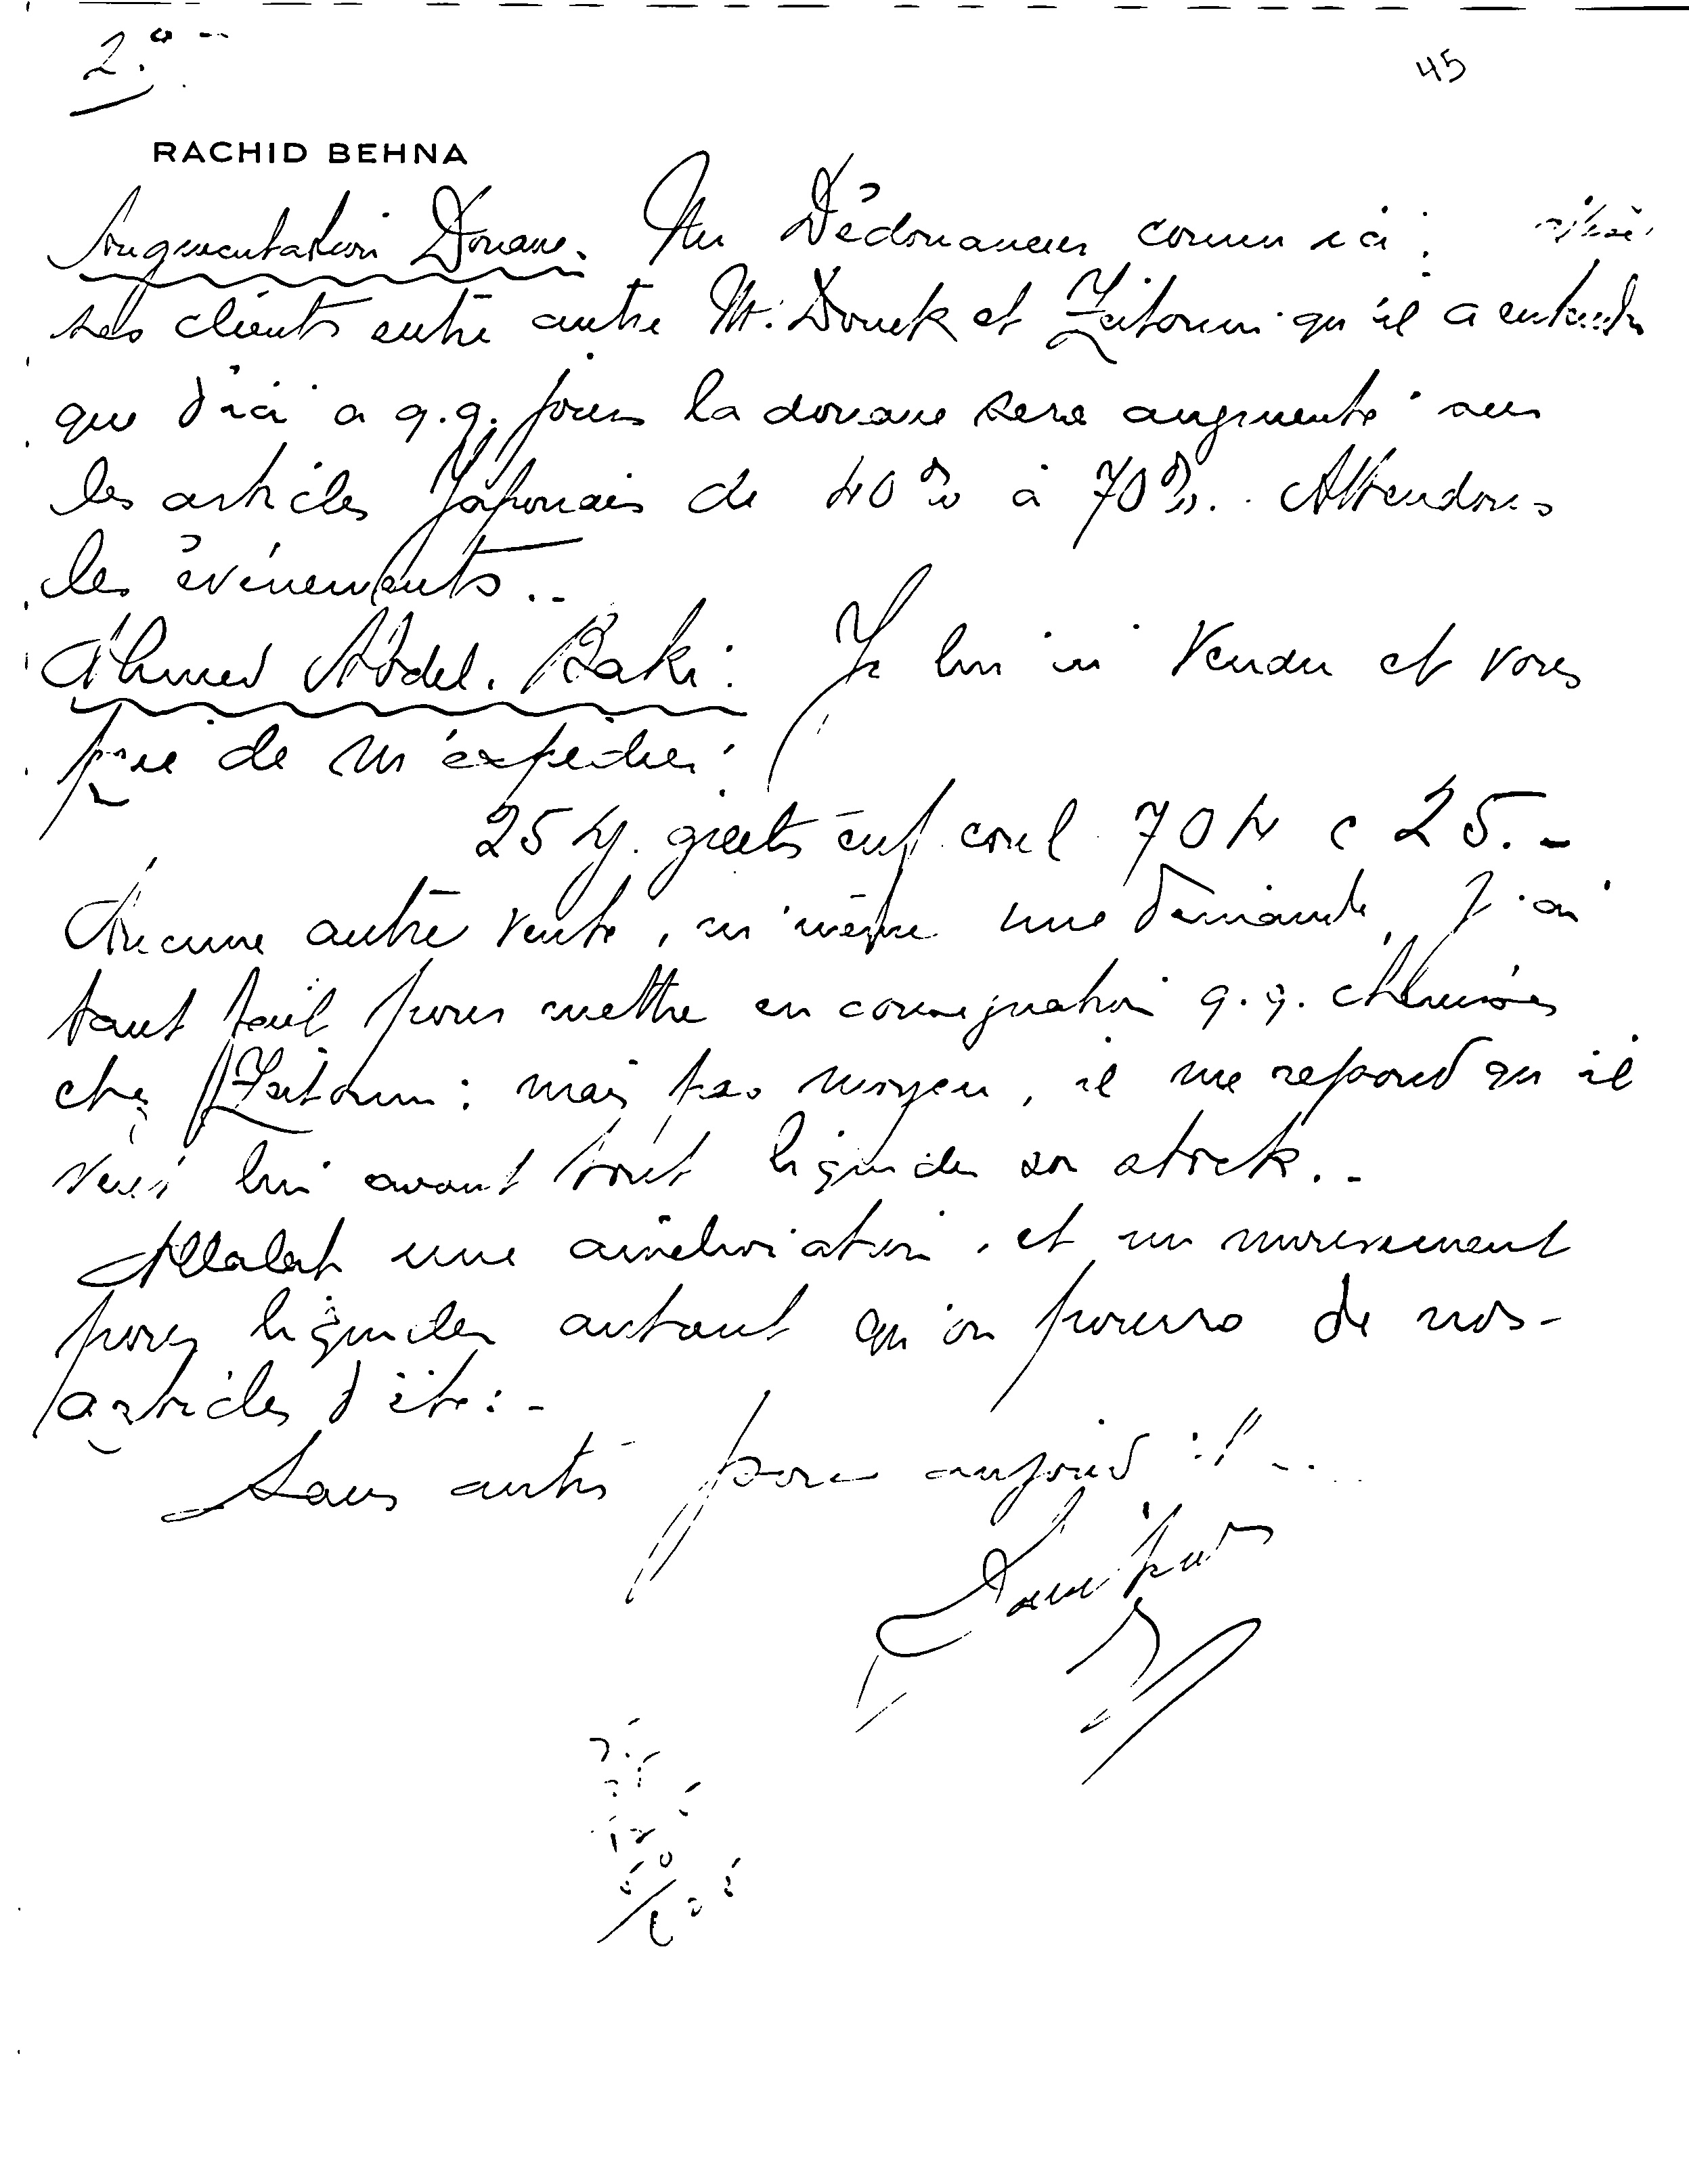 2.°
45
RACHID BEHNA
Augmentation Douane. Un Dédouaneur connu ici
ses clients entre autre Mr. Douek et Zeitouni qu'il a entendu
que d'ici a q.q. jours la douane sera augmenté sur
les articles Japonais de 40% à 70%. Attendons
les événements..
Ahmed Abdel. Baki: Je lui ai vendu et vous
prie de m'expédier:
25 gilets enf. coul 704 c 25.-
Aucune autre vente, ni même une demande, J'ai
tant fait pour mettre en consignation q.q. chemises
chez Zeitouni: mais pas moyen, il me repond qu'il
veut lui avant tout liquider son stock..-
une amélioration, et un mouvement
pour liquider autant qu'on pourra de nos-
articles d'été:-
Sans autre pour aujourd